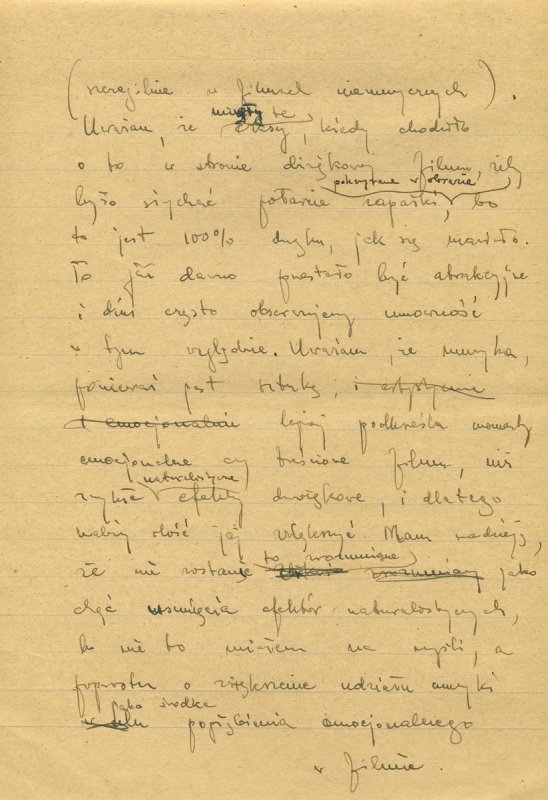 (szczególnie w filmach niemuzycznych).
minęły te
Uważam, że czasy, kiedy chodziło
o to w stronie dźwiękowej filmu, żeby
pokazane w obrazie
było słychać potarcie zapałki, bo
to jest 100% dźwięku, jak się mawiało.
To już dawno przestało być atrakcyjne
i dziś często obserwujemy umowność
w tym względzie. Uważam, że muzyka,
ponieważ jest sztuką, i artystycznie
i emocjonalnie lepiej podkreśla momenty
emocjonalne czy treściowe filmu, niż
naturalistyczne
zwykłe efekty dźwiękowe, i dlatego
należy ilość jej zwiększyć. Mam nadzieję,
to zrozumiane
że nie zostanę zrozumiany jako
chęć usunięcia efektów naturalistycznych,
bo nie to miałem na myśli, a
poprostu o zwiększenie udziału muzyki
jako środka
w celu pogłębienia emocjonalnego
w filmie.